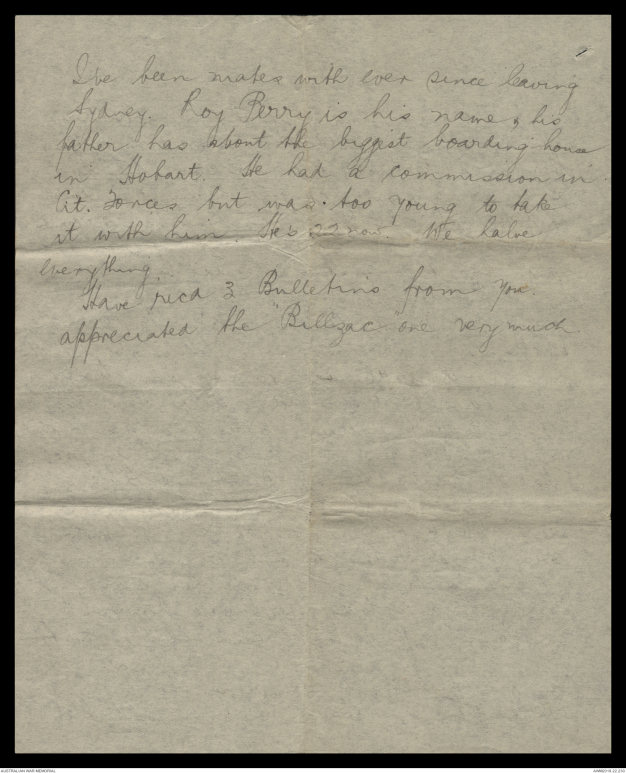 I've been mates with ever since leaving
Sydney. Roy Perry is his name & his
father has about the biggest boarding house
in Hobart. He had a commission in
Cit. Forces but was too young to take
it with him. He's 22 now. We halve
everything.
Have rec'd 3 Bulletins from you.
appreciated the "Billzac" one very much
AUSTRALIAN WAR MEMORIAL